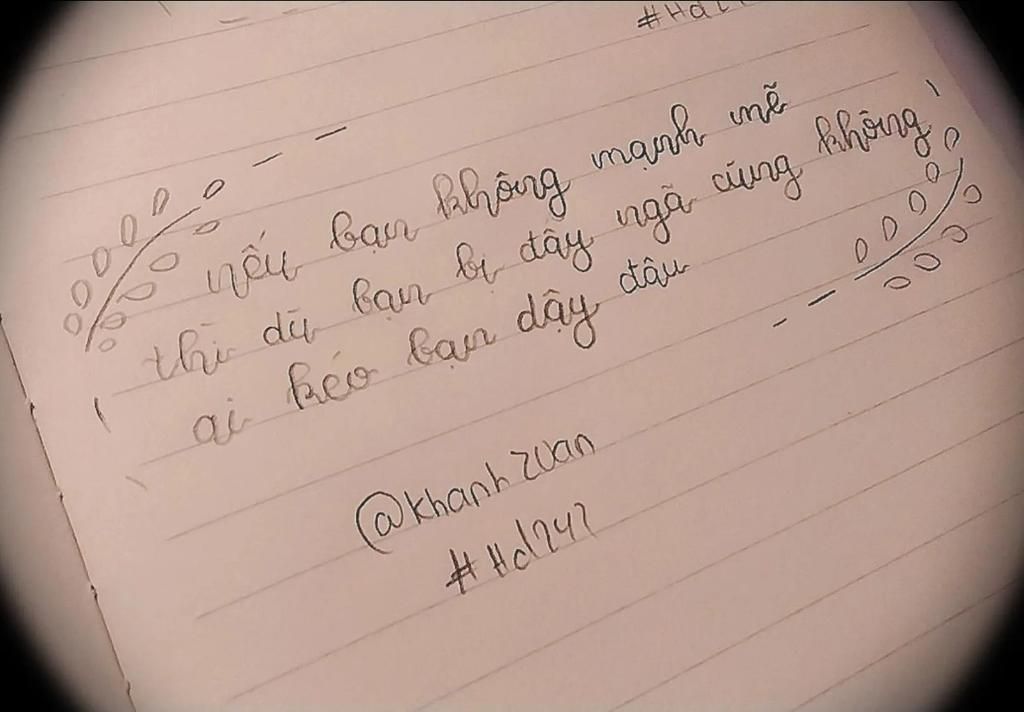 #Hd
nếu bạn không mạnh mẽ
thì dù bạn bị đẩy ngã cũng không
ai kéo bạn dậy đâu
@khanhzuan
#Hd747